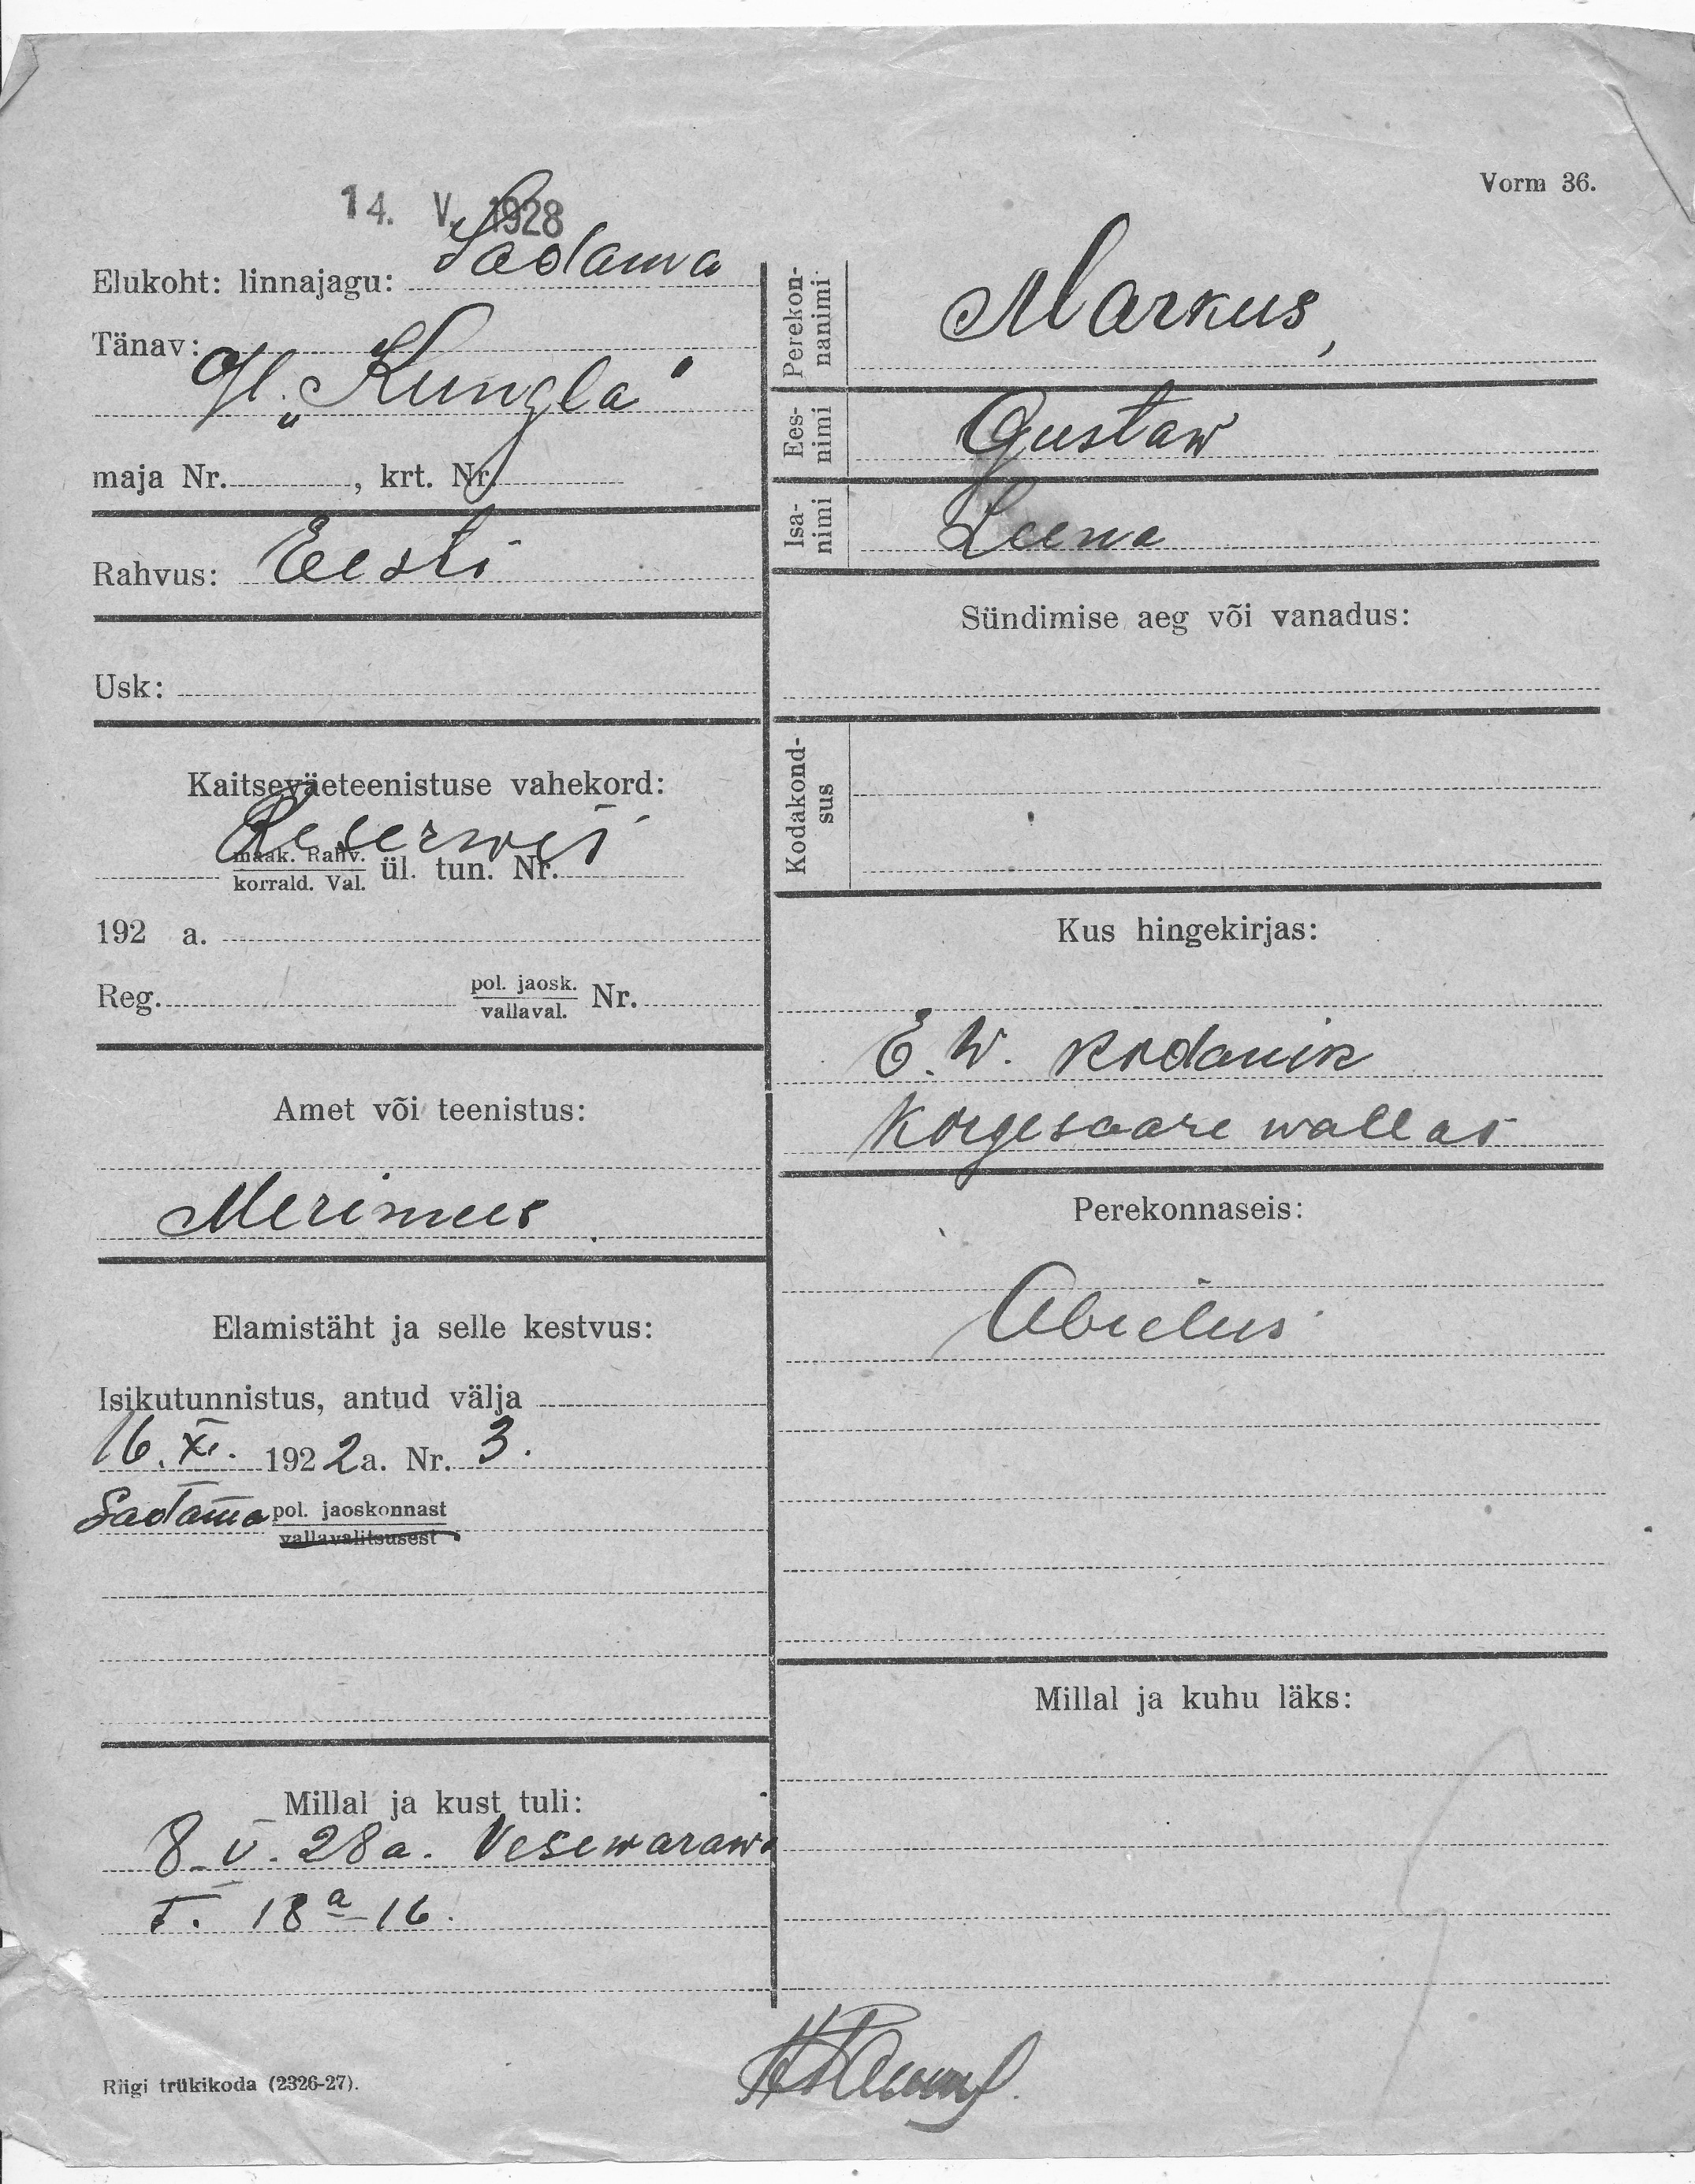 Vorm 36.
14. V. 1928
Elukoht: linnajagu: Sadama
Tänav:
"Kungla"
maja Nr. , krt. Nr.
Rahvus: Eesti
Usk:
Kaitseväeteenistuse vahekord:
Reserwis
maak. Rahv.
korrald. Val. ül. tun. Nr.
192 a.
Reg. pol. jaosk.
vallaval. Nr.
Amet või teenistus:
Merimees
Elamistäht ja selle kestvus:
Isikutunnistus, antud välja
16. XI. 1922a. Nr. 3.
Sadama pol. jaoskonnast
vallavalitsusest
Millal ja kust tuli:
8. V. 28a. Vesewarawa
T. 18a-16.
Riigi trükikoda (2326-27).
Perekon-
nanimi
Markus,
Ees-
nimi
Gustaw
Isa-
nimi
Leena
Sündimise aeg või vanadus:
Kodakond-
sus
Kus hingekirjas:
E.W. kodanik
Kõrgesaare wallas
Perekonnaseis:
Abielus
Millal ja kuhu läks: